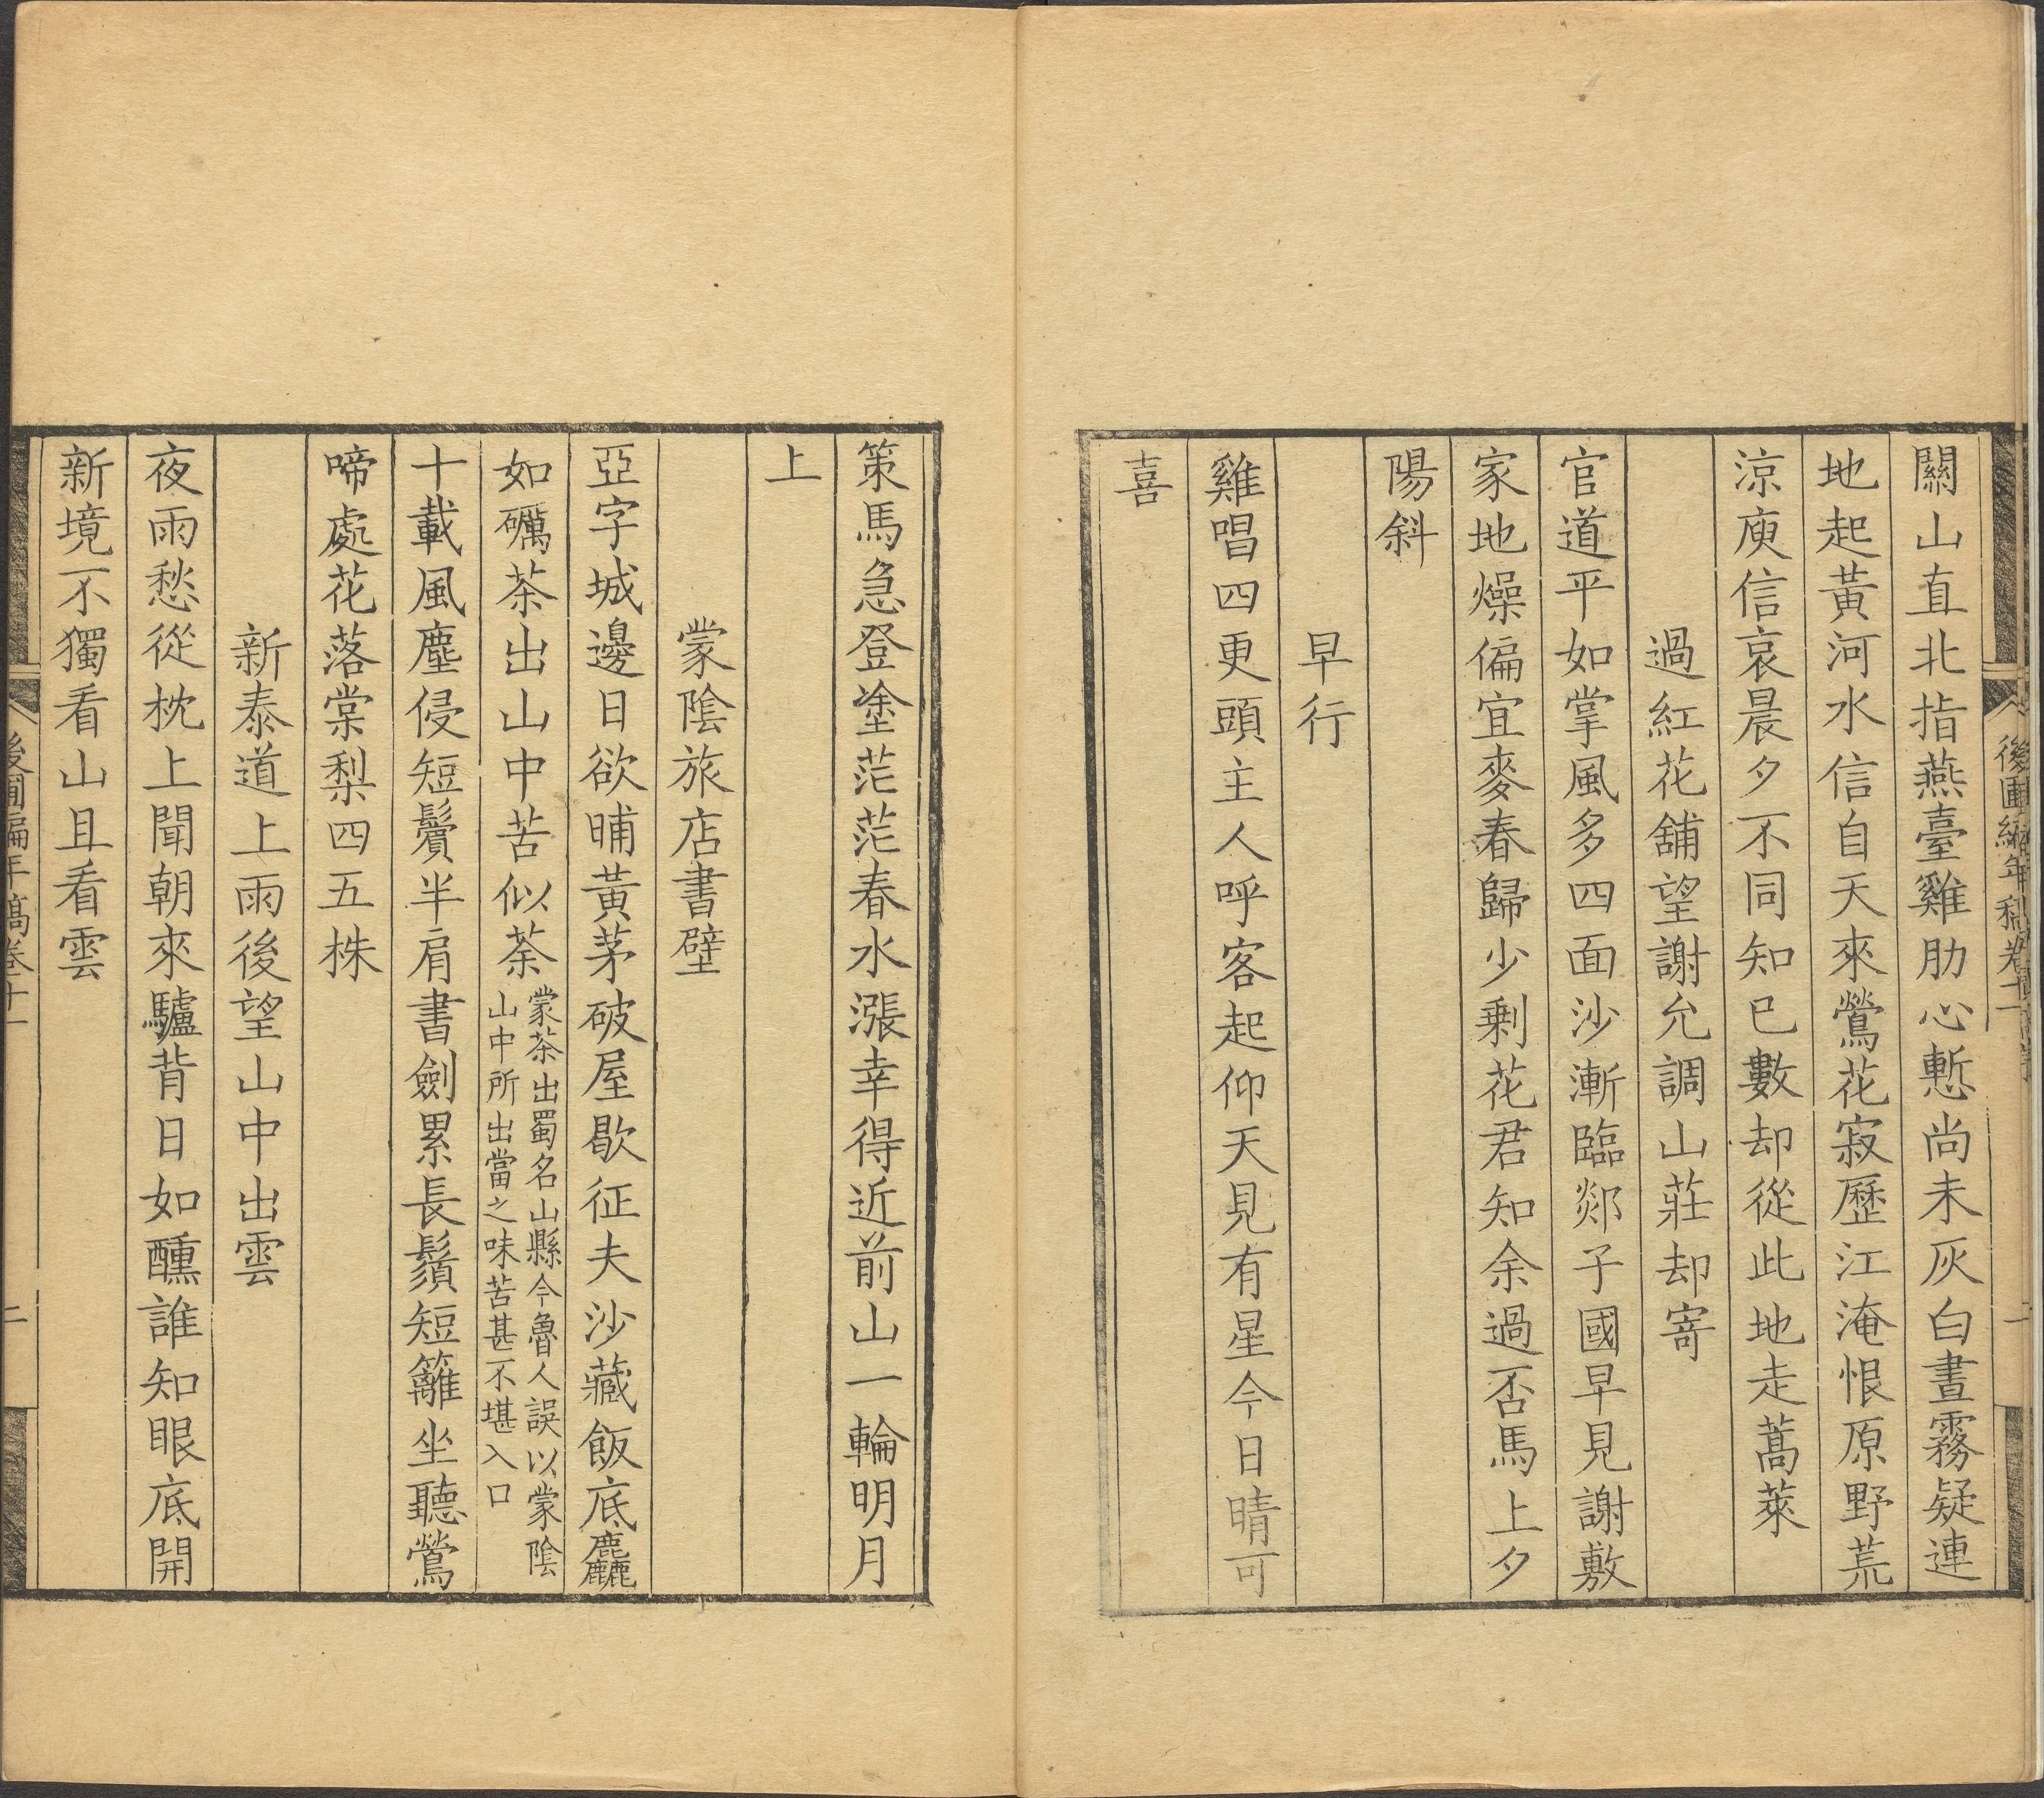 關山直北指燕臺雞肋心慙尚未灰白晝霧疑連
地起黃河水信自天來鶯花寂歷江淹恨原野荒
涼庾信哀晨夕不同知已數却從此地走蒿萊
過紅花舖望謝允調山莊却寄
官道平如掌風多四面沙漸臨郯子國早見謝敷
家地燥偏宜麥春歸少剩花君知余過否馬上夕
陽斜
早行
雞唱四更頭主人呼客起仰天見有星今日晴可
喜
策馬急登塗茫茫春水漲幸得近前山一輪明月
上
蒙陰旅店書壁
亞字城邊日欲晡黃茅破屋歇征夫沙藏飯底麤
如礪茶出山中苦似荼蒙茶出蜀名山縣今魯人誤以蒙陰
山中所出當之味苦甚不堪入口
十載風塵侵短鬢半肩書劍累長鬚短籬坐聽鶯
啼處花落棠梨四五株
新泰道上雨後望山中出雲
夜雨愁從枕上聞朝來驢背日如醺誰知眼底開
新境不獨看山且看雲
後圃編年稿卷十一
二